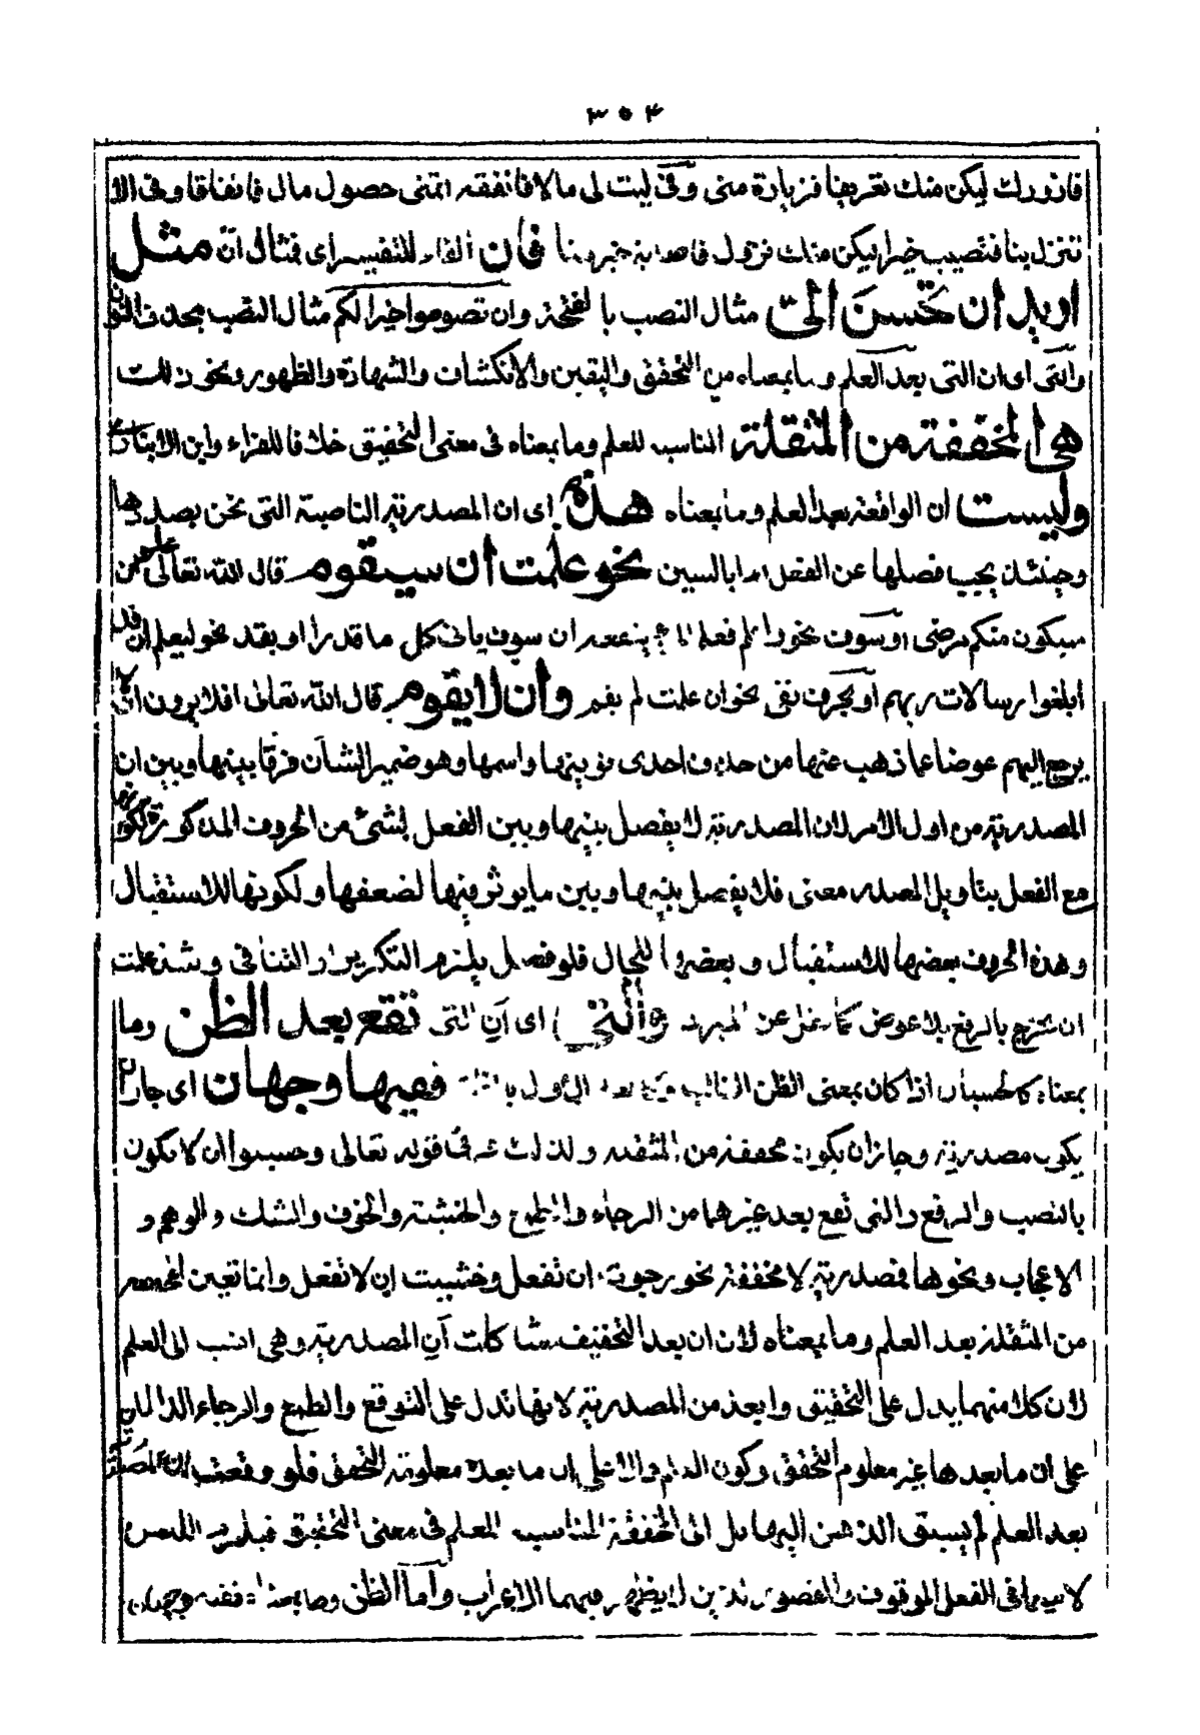 ٣٠٤
فازورك ليكن منك تعريفا فزيارة منى وفى ليت لى مالا فانفقه اتمنى حصول مال فانفاقا وفى الا
تنزل بنا فتصيب خيرا ليكن منك نزول فاصابة خير منا فأن الفاء للتفسير اى فمثال ان مثل
اريد أن تحسن الىّ مثال النصب بالفتحة وان تصوموا خير لكم مثال النصب بحذف النون
والتى اى ان التى بعد العلم وما بمعناه من التحقق واليقين والانكشاف والشهادة والظهور ونحو ذلك
هى المخففة من المثقلة المناسب للعلم وما بمعناه فى معنى التحقيق خلافا للفراء وابن الانبارى
وليست ان الواقعة بعد العلم وما بمعناه هذه اى ان المصدرية الناصبة التى نحن بصددها
وحينئذ يجب فصلها عن الفعل اما بالسين نحو علمت أن سيقوم قال الله تعالى علم ان
سيكون منكم مرضى او سوف نحو واعلم فعلم المرء ينفعه ان سوف يأتى كل ما قدرا او بقد نحو ليعلم ان قد
ابلغوا رسالات ربهم او بحرف نفى نحو ان علمت لم يقم وأن لا يقوم قال الله تعالى افلا يرون ان لا
يرجع اليهم عوضا عما ذهب عنها من حذف احدى نونيها واسمها وهو ضمير الشأن فرقا بينها وبين ان
المصدرية من اول الامر لان المصدرية لا يفصل بينها وبين الفعل بشئ من الحروف المذكورة لكونها
مع الفعل بتاويل المصدر معنى فلا يفصل بينها وبين ما يوثر فيها لضعفها ولكونها للاستقبال
وهذه الحروف بعضها للاستقبال وبعضها للحال فلو فصل يلزم التكرير او التنافى وشذ علمت
ان تخرج بالرفع بلا عوض كما نقل عن المبرد والتى اى أن التى تقع بعد الظن وما
بمعناه كالحسبان اذا كان بمعنى الظن الغالب ففيها وجهان اى جاز ان
يكون مصدرية وجاز ان يكون مخففة من المثقلة ولذلك قرئ قوله تعالى وحسبوا ان لا تكون
بالنصب والرفع والتى تقع بعد غيرهما من الرجاء والطمع والخشية والخوف والشك والوهم و
الاعجاب ونحوها فمصدرية لا مخففة نحو رجوت ان تفعل وخشيت ان لا تفعل وانما تعين المخففة
من المثقلة بعد العلم وما بمعناه لان ان بعد التخفيف شاكلت أن المصدرية وهى انسب الى العلم
لان كلا منهما يدل على التحقيق وابعد من المصدرية لانها تدل على التوقع والطمع والرجاء الدالة
على ان ما بعدها غير معلوم التحقق وكون العلم دالا على ان ما بعده معلومة التحقق فلو وقعت ان المصدرية
بعد العلم لم يسبق الذهن اليها بل الى المخففة المناسبه للعلم فى معنى التحقيق فيلزم اللبس
لا سيما فى الفعل الموقوف والمقصور الذين لا يظهر فيهما الاعراب واما الظن وما بمعناه ففيه وجهان